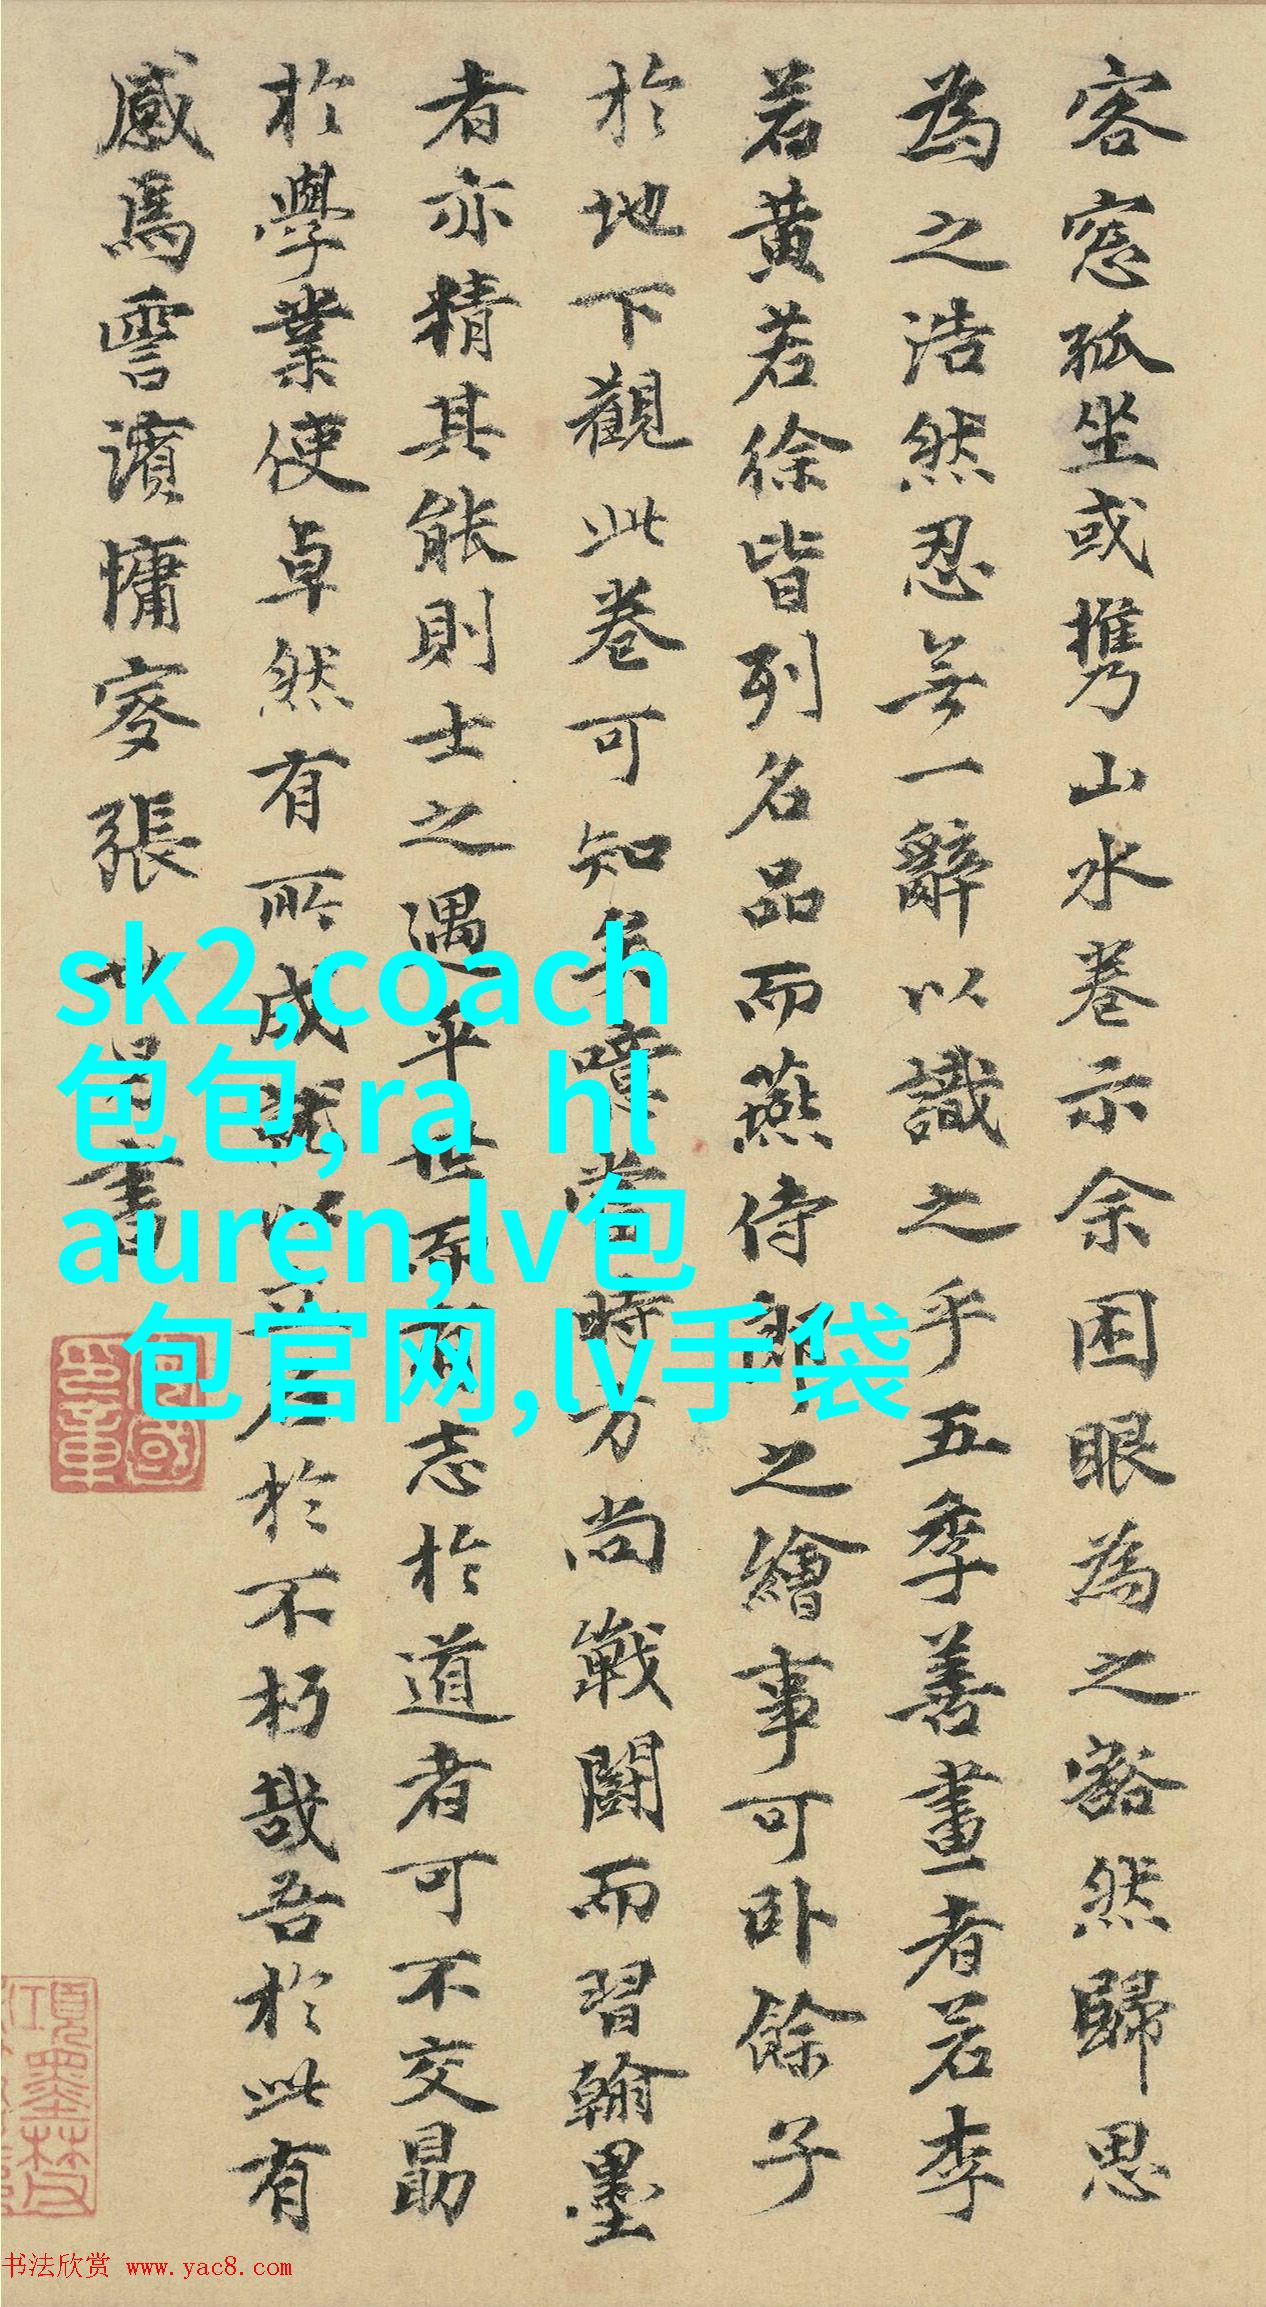 客窓孤坐或携山水卷示余困眼為之豁然歸思
為之浩然忍無一辭以識之乎五季善畫者若李
若黄若徐皆列名品而燕侍郎之繪事可卧餘子
於地下觀此卷可知矣噫當時方尚戰鬭而習翰墨
者亦精其能則士之遇平世而有志於道者可不交勗
於學業使卓然有所成就以
於不朽哉吾於此有
感焉
張
書
sk2,coach
包包,ra hl
auren,lv包
包官网,lv手袋
书法欣赏 www.yac8.com